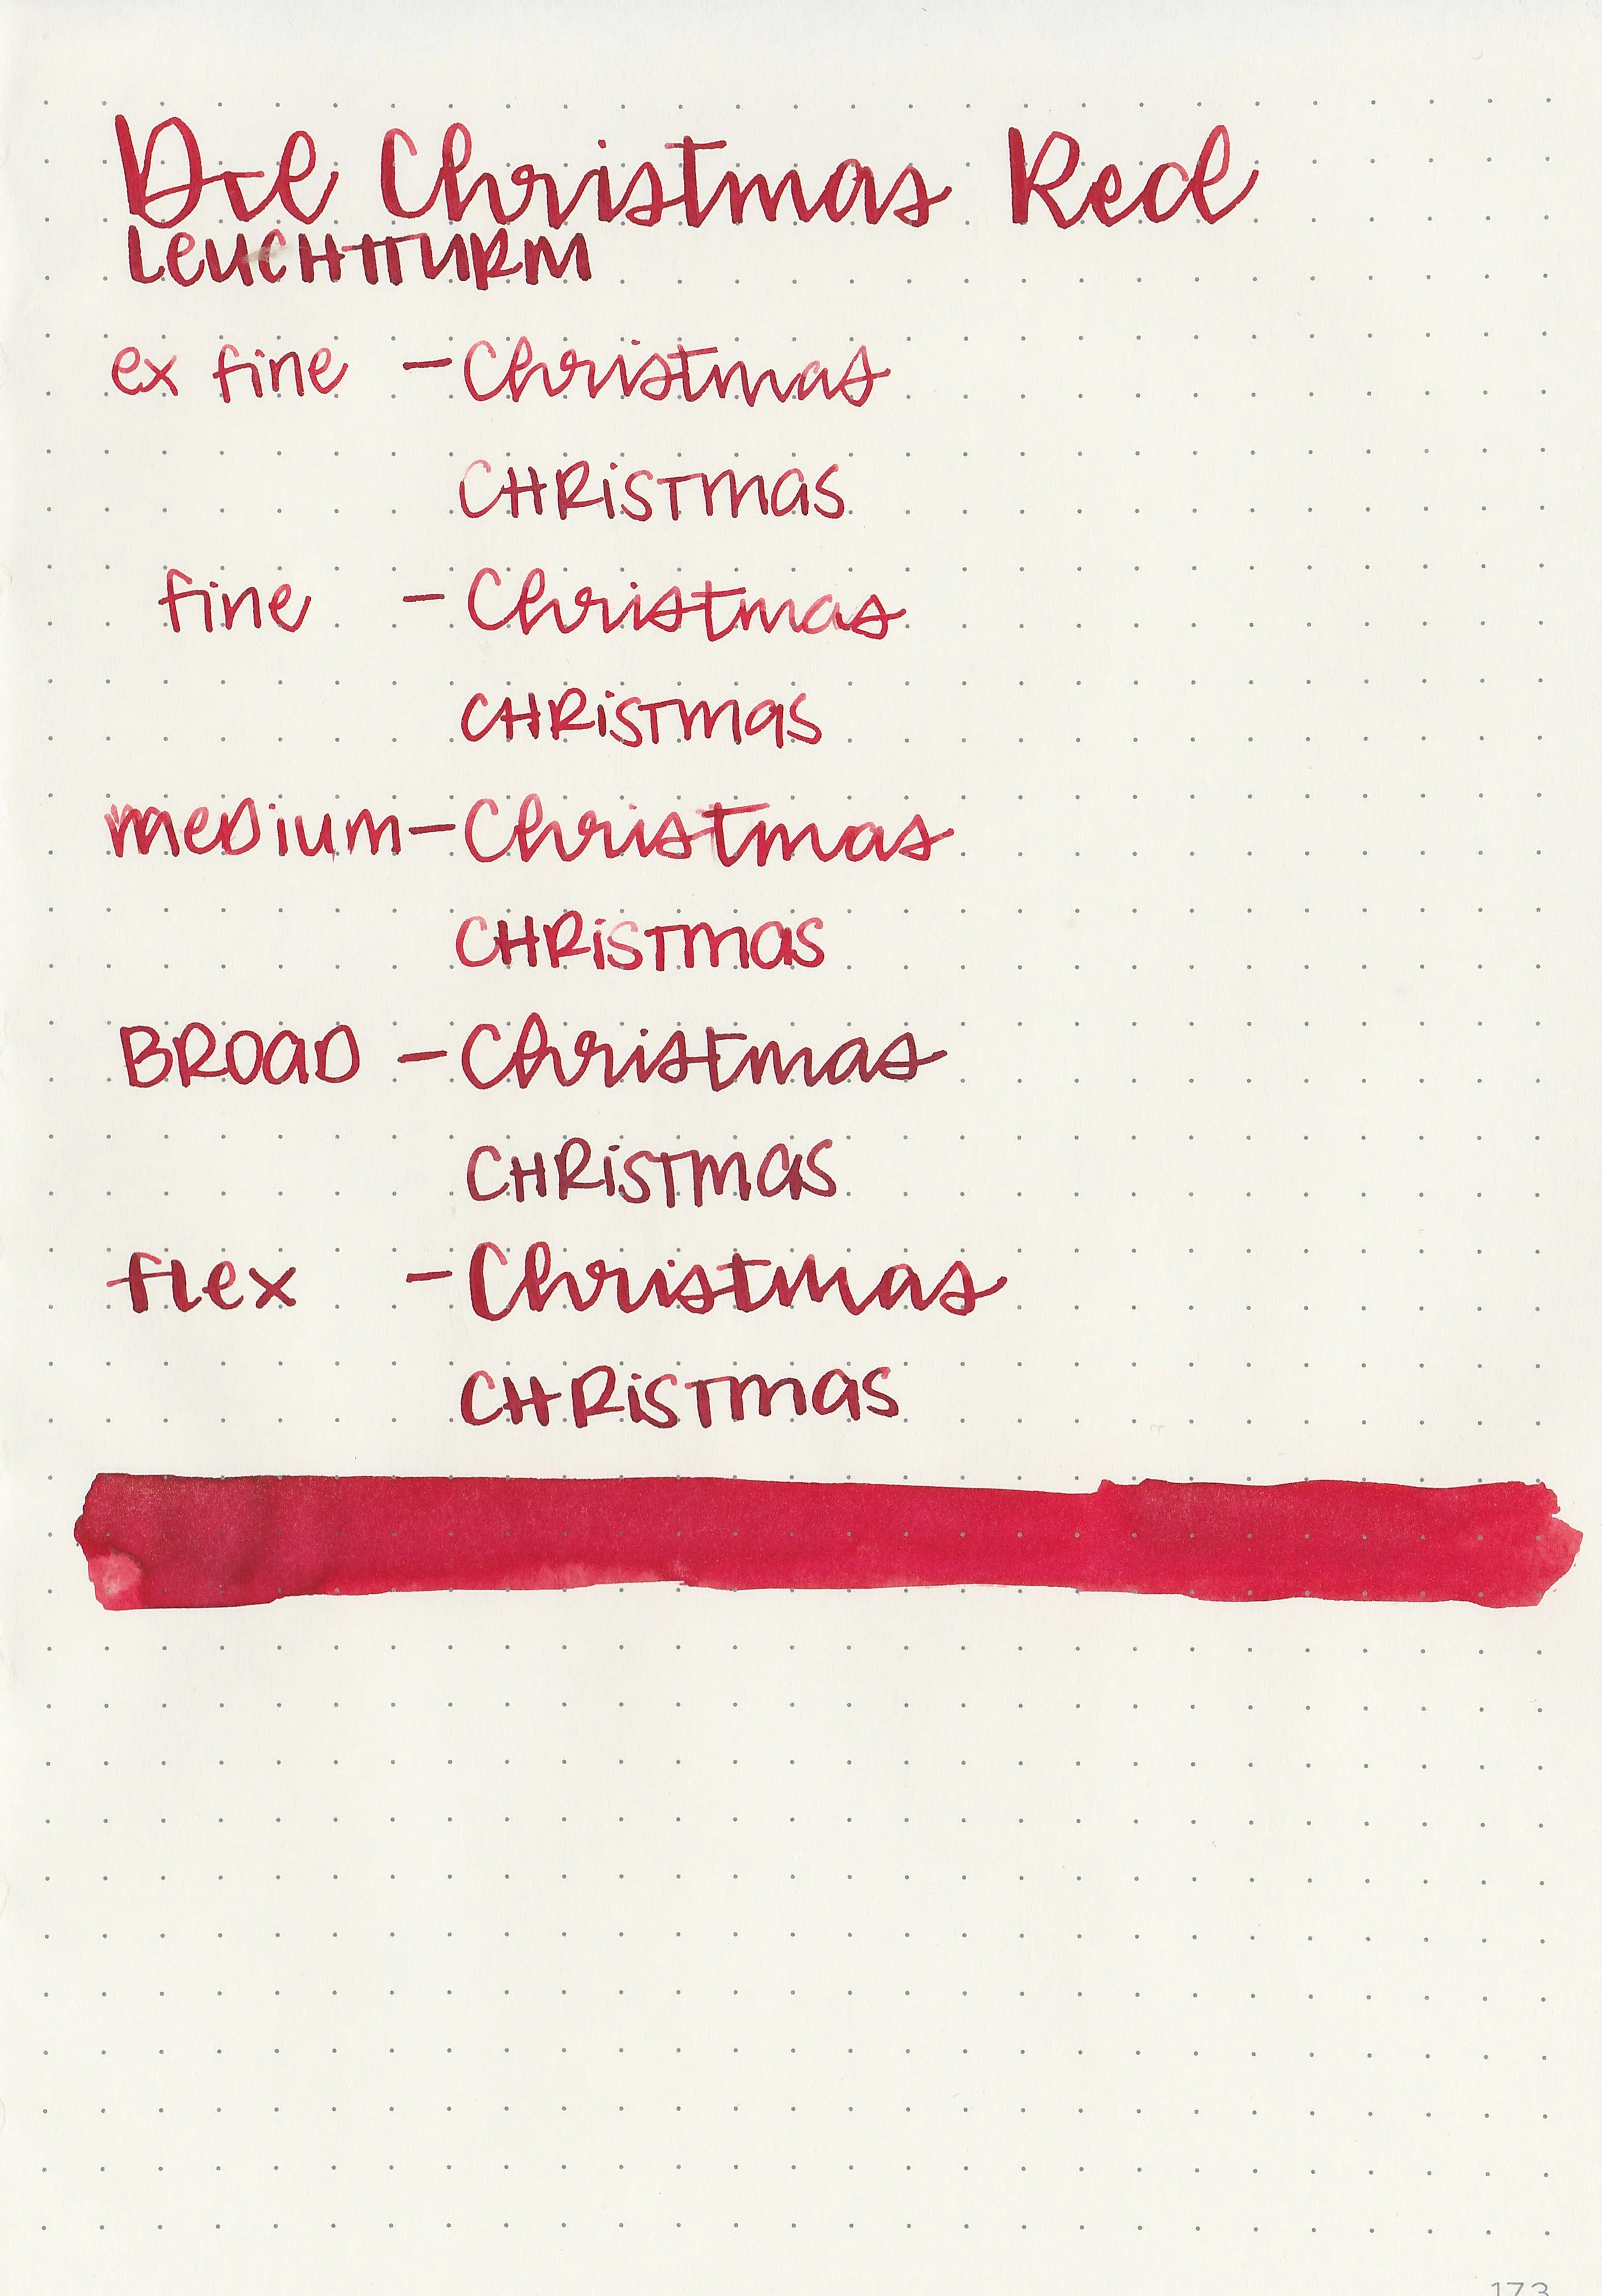 Christmas Red
LEUCHTTURM
ex fine - Christmas
CHRISTMAS
fine - Christmas
CHRISTMAS
medium - Christmas
CHRISTMAS
BROAD - Christmas
CHRISTMAS
flex - Christmas
CHRISTMAS
173